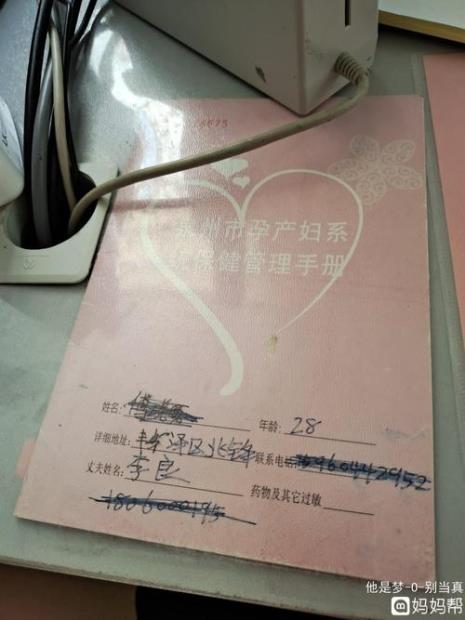 泉州市孕产妇系
统保健管理手册
姓名: 年龄: 28
详细地址: 丰泽区北峰 联系电话:
丈夫姓名: 李良 药物及其它过敏
他是梦-0-别当真
妈妈帮